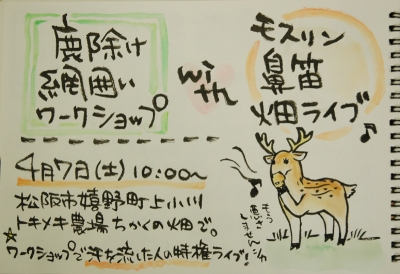 鹿除け
網囲い
ワークショップ
with
モスリン
鼻笛
畑ライブ♪
4月7日(土) 10:00〜
松阪市嬉野町上小川
トキメキ農場ちかくの畑で。
☆ワークショップで汗を流した人の特権ライブ!
もう
悪さ
しません